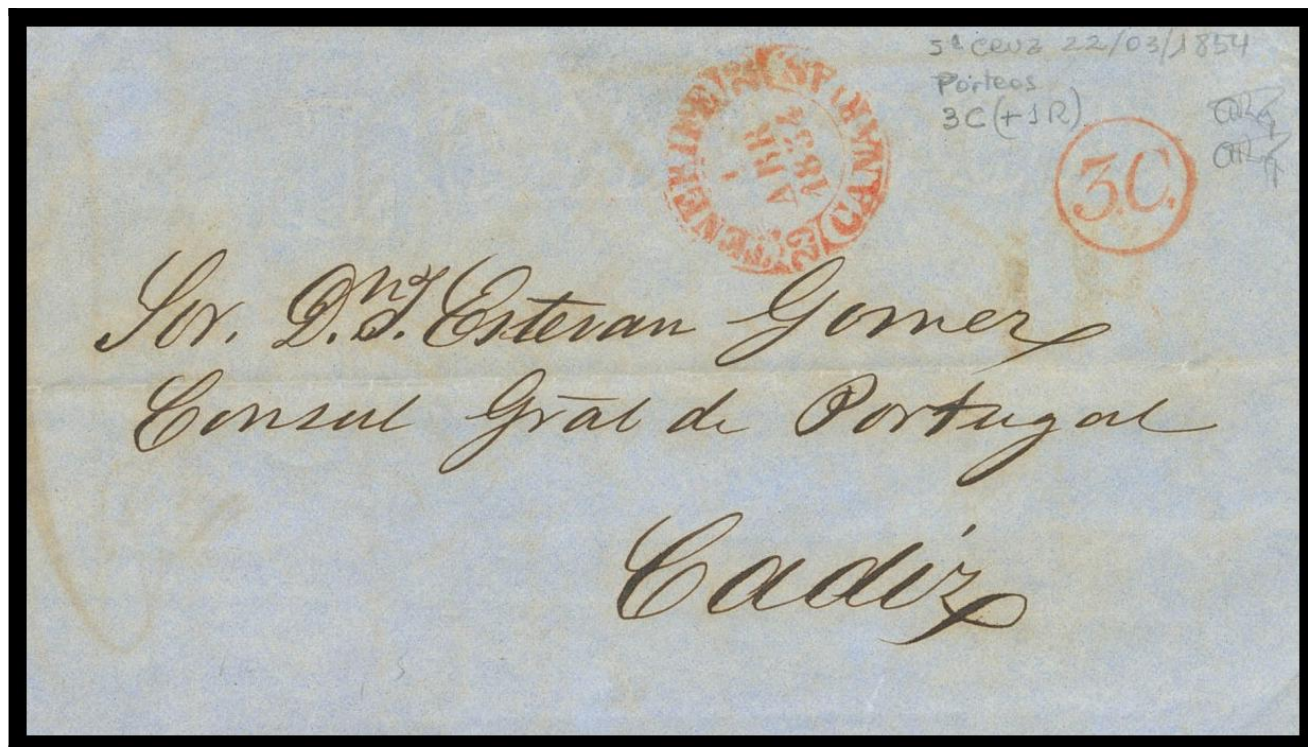 Sta Cruz 22/03/1854
Porteos
3C (+1R)
TENERIFE CANARIAS
1 ABR 1854
3.C.
Sor. Dn. J. Estevan Gomez
Consul Grāl de Portugal
Cadiz